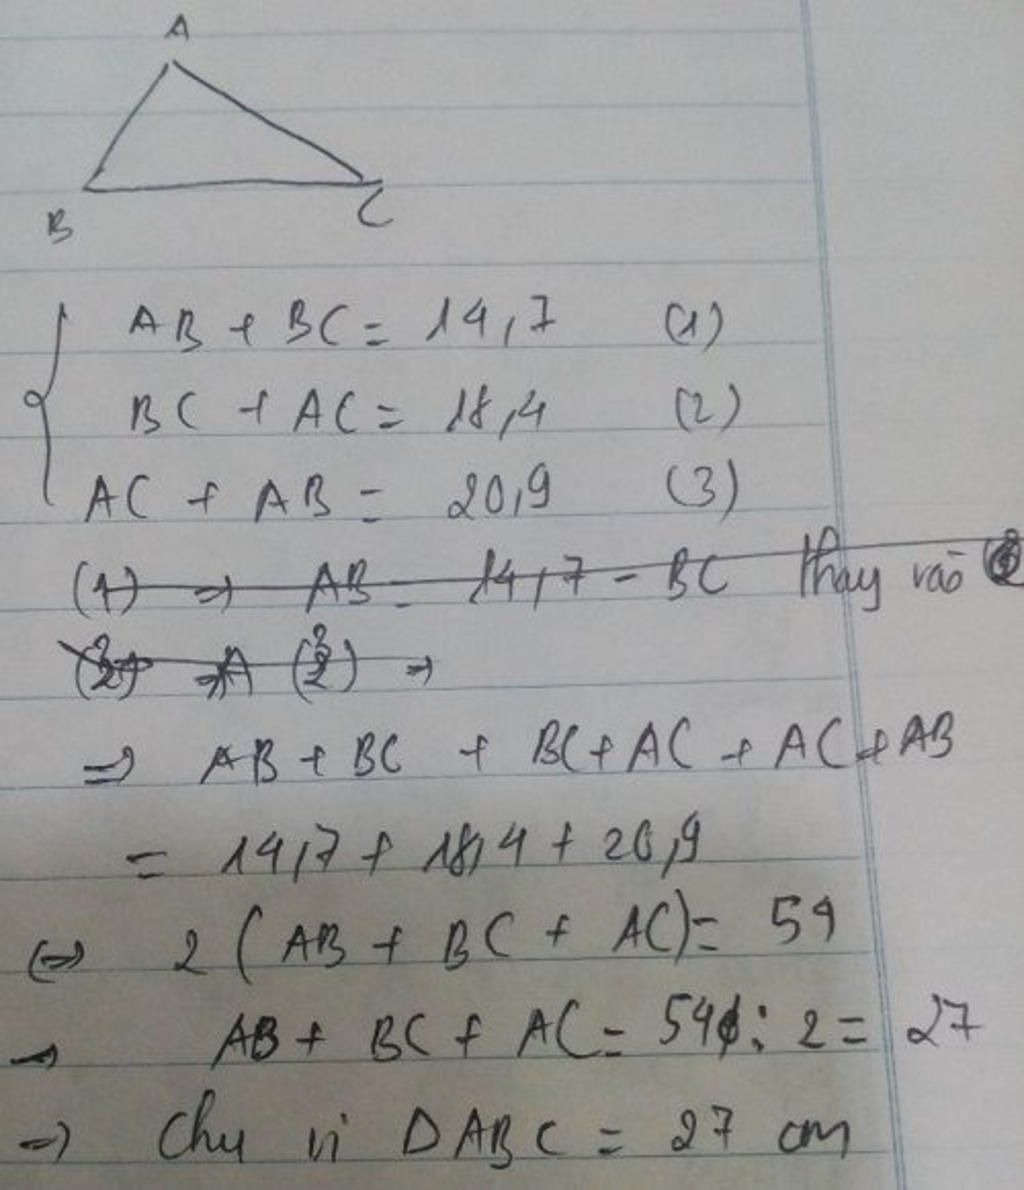 A
B
C
AB + BC = 14,7 (1)
BC + AC = 18,4 (2)
AC + AB = 20,9 (3)
(1) => AB = 14,7 - BC thay vào
=> A =>
=> AB + BC + BC + AC + AC + AB
= 14,7 + 18,4 + 20,9
<=> 2 (AB + BC + AC) = 54
→ AB + BC + AC = 54 : 2 = 27
=> Chu vi ΔABC = 27 cm